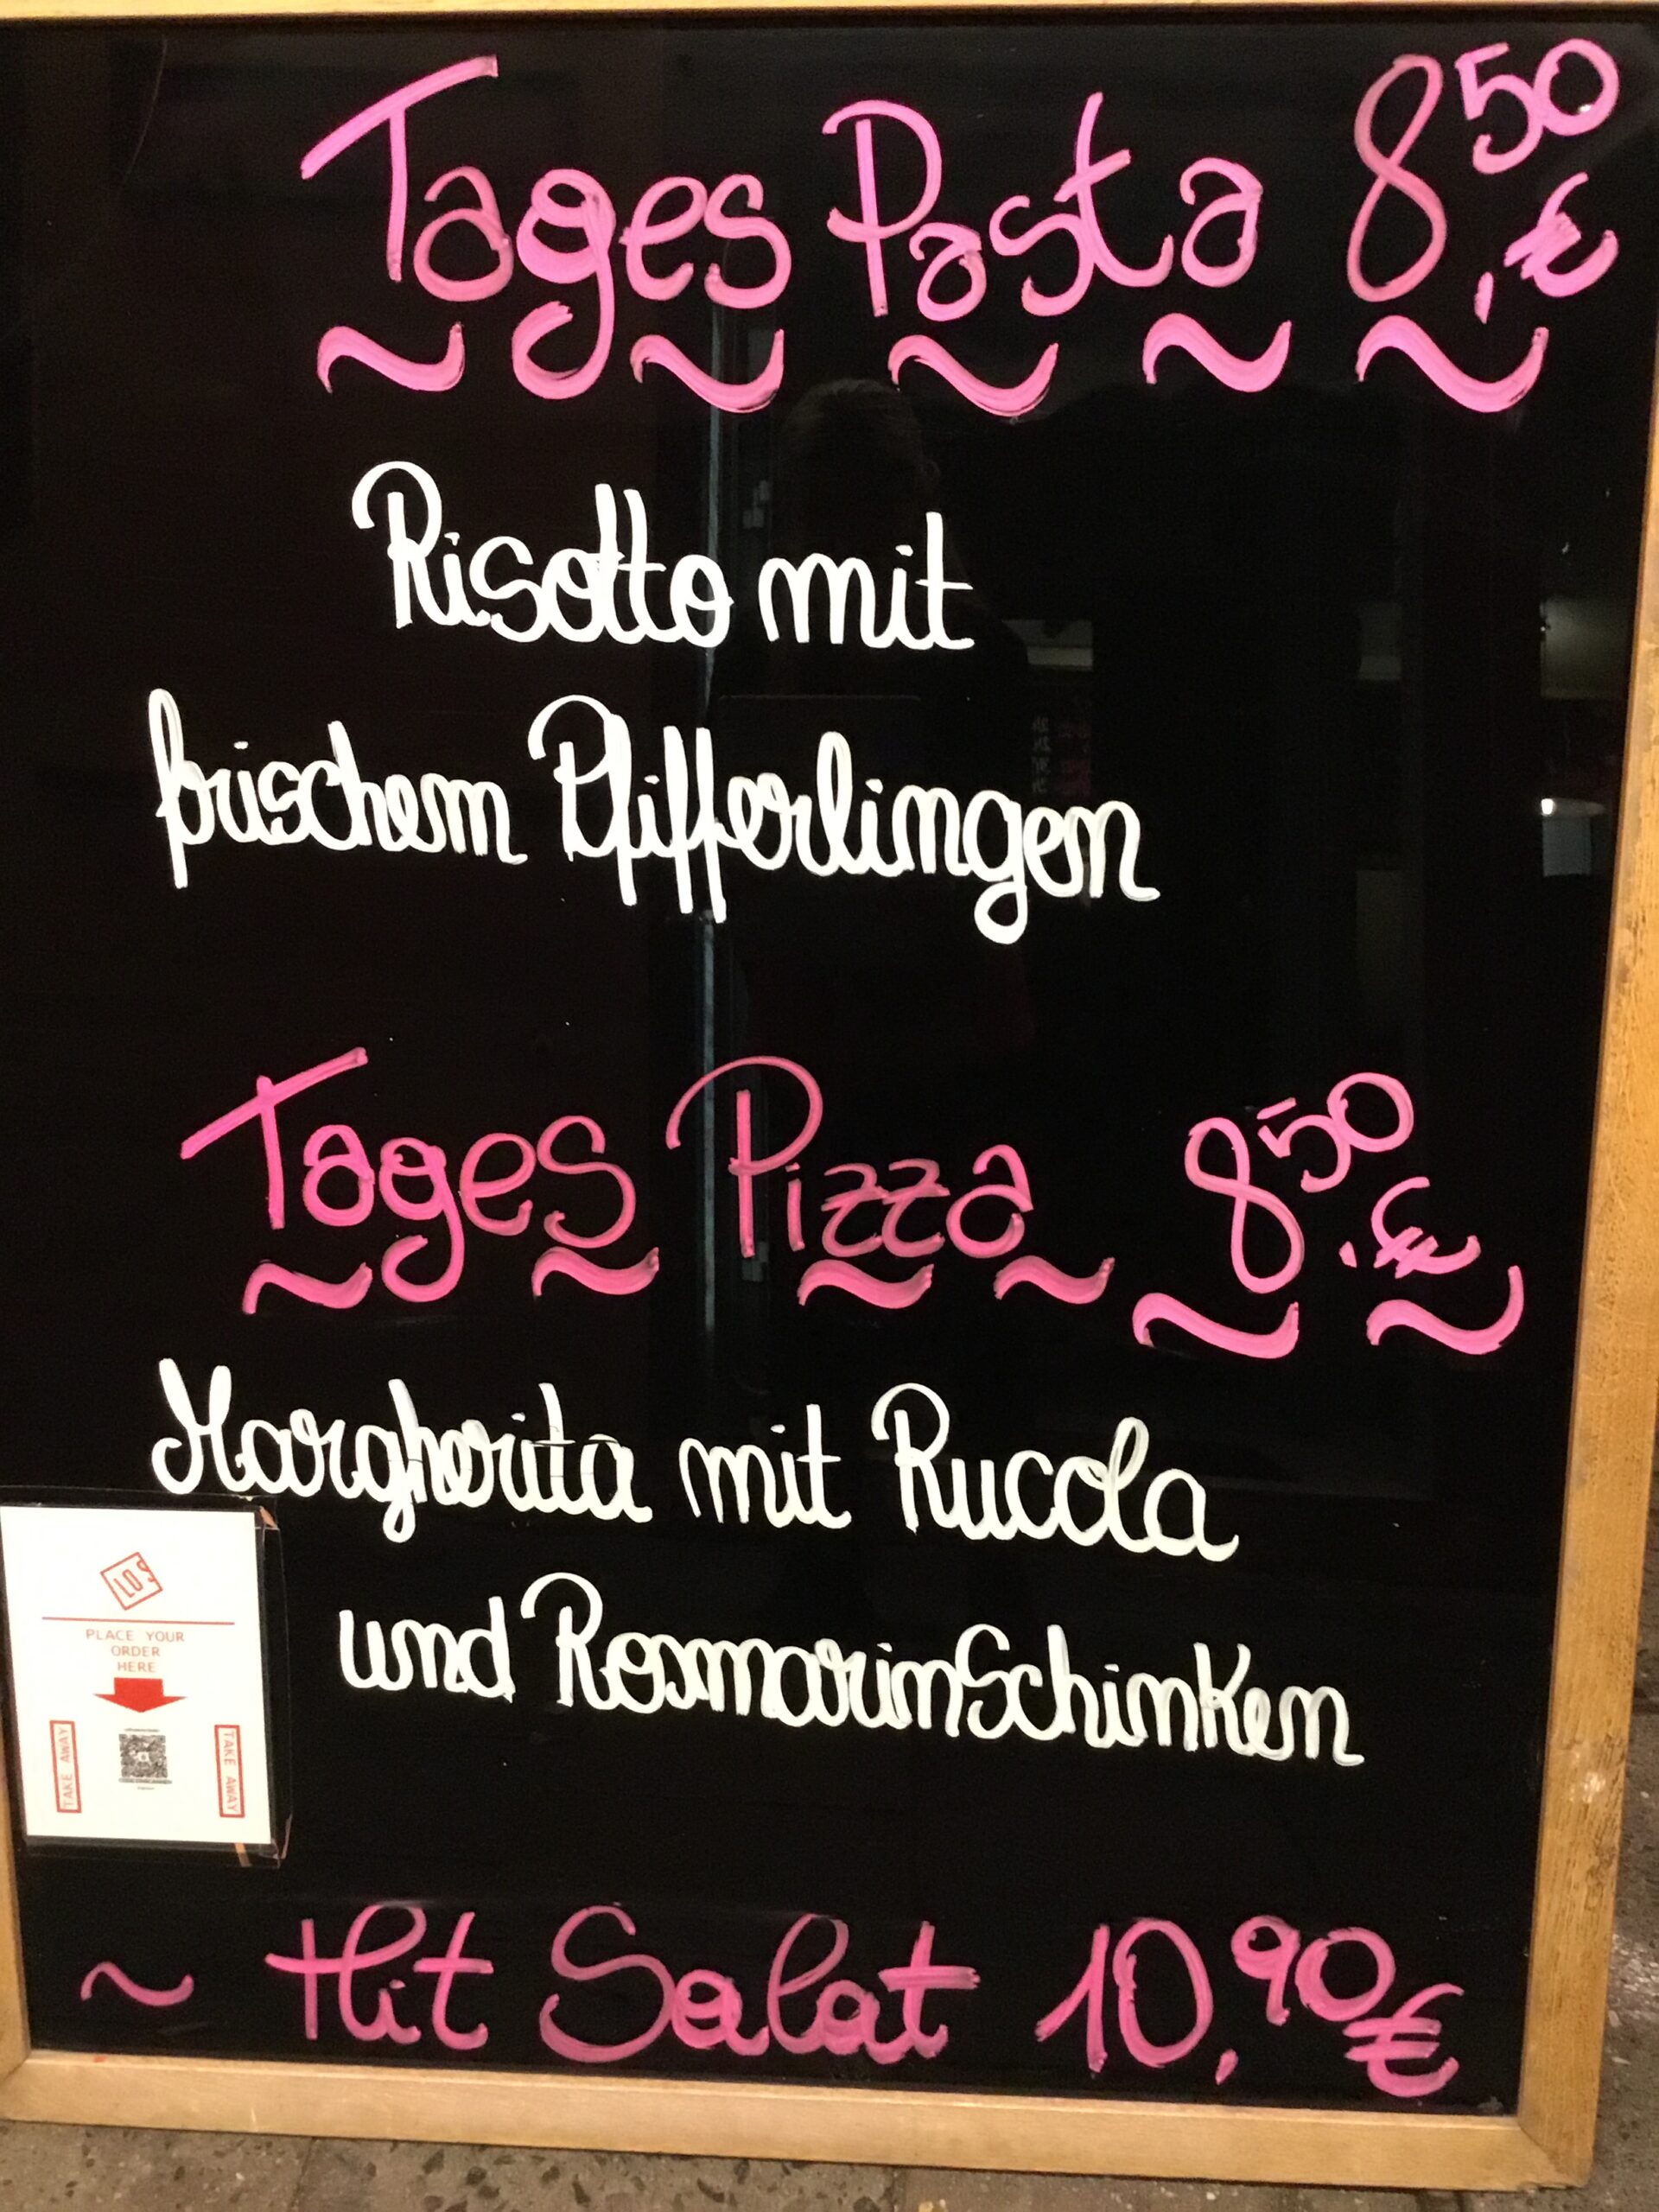 Tages Pasta 8,50 €
Risotto mit
frischem Pfifferlingen
Tages Pizza 8,50 €
Margherita mit Rucola
und RosmarinSchinken
LOS
PLACE YOUR
ORDER
HERE
TAKE AWAY
TAKE AWAY
~ Hit Salat 10,90 €